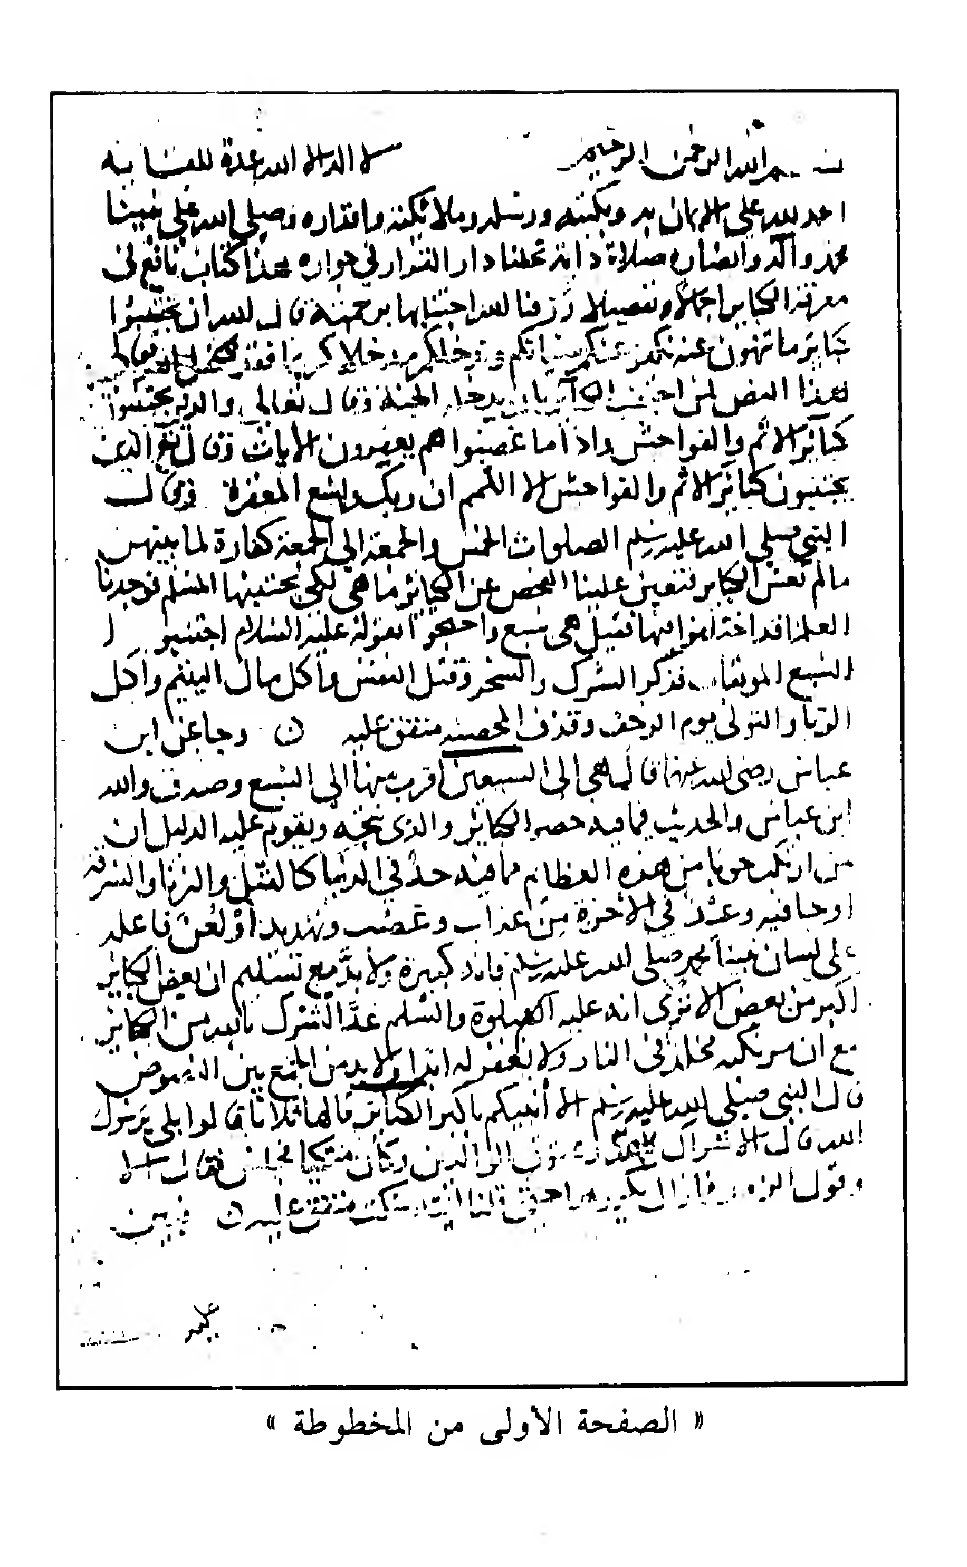 بسم الله الرحمن الرحيم لا اله الا الله عدة للقائه
الحمد لله على الايمان به وبكتبه ورسله وملائكته واقداره وصلى الله على نبينا
محمد وآله وانصاره صلاة دائمة تحلنا دار القرار في جواره هذا كتاب نافع في
معرفة الكبائر اجمالا وتفصيلا رزقنا الله اجتنابها برحمته قال الله ان تجتنبوا
كبائر ما تنهون عنه نكفر عنكم سيئاتكم وندخلكم مدخلا كريما فقد تكفل الله تعالى
بهذا النص لمن اجتنب الكبائر بان يدخله الجنة وقال تعالى والذين يجتنبون
كبائر الاثم والفواحش واذا ما غضبوا هم يغفرون الآيات وقال تع الذين
يجتنبون كبائر الاثم والفواحش الا اللمم ان ربك واسع المغفرة وقال
النبي صلى الله عليه وسلم الصلوات الخمس والجمعة الى الجمعة كفارة لما بينهن
مالم تغش الكبائر فتعين علينا الفحص عن الكبائر ما هي لكي يجتنبها المسلم فوجدنا
العلماء قد اختلفوا فيها فقيل هي سبع واحتجوا بقوله عليه السلام اجتنبو ا
السبع الموبقات فذكر الشرك والسحر وقتل النفس وأكل مال اليتيم وأكل
الربا والتولي يوم الزحف وقذف المحصنه متفق عليه ن وجا عن ابن
عباس رضي الله عنهما قال هي الى السبعين اقرب منها الى السبع وصدق والله
ابن عباس والحديث فما فيه حصر الكبائر والذي يتجه ويقوم عليه الدليل ان
من ارتكب حوبا من هذه العظائم مما فيه حد في الدنيا كالقتل والزنا والسرقة
اوجا فيه وعيد في الآخرة من عذاب وغضب وتهديد أو لعن فاعله
على لسان نبينا محمد صلى الله عليه وسلم فانه كبيرة ولا بد مع تسليم ان بعض الكبائر
اكبر من بعض الا ترى انه عليه الصلوة والسلم عد الشرك بالله من الكبائر
مع ان مرتكبه مخلد في النار ولا يغفر له ابدا ولا بد من الجمع بين النصوص
قال النبي صلى الله عليه وسلم الا أنبئكم باكبر الكبائر قالها ثلاثا قالوا بلى يرسول
الله قال الاشراك بالله وعقوق الوالدين وكان متكيا فجلس فقال الا
وقول الزور فما زال يكررها حتى قلنا ليته سكت متفق عليه ن فبين
عليه
« الصفحة الأولى من المخطوطة »